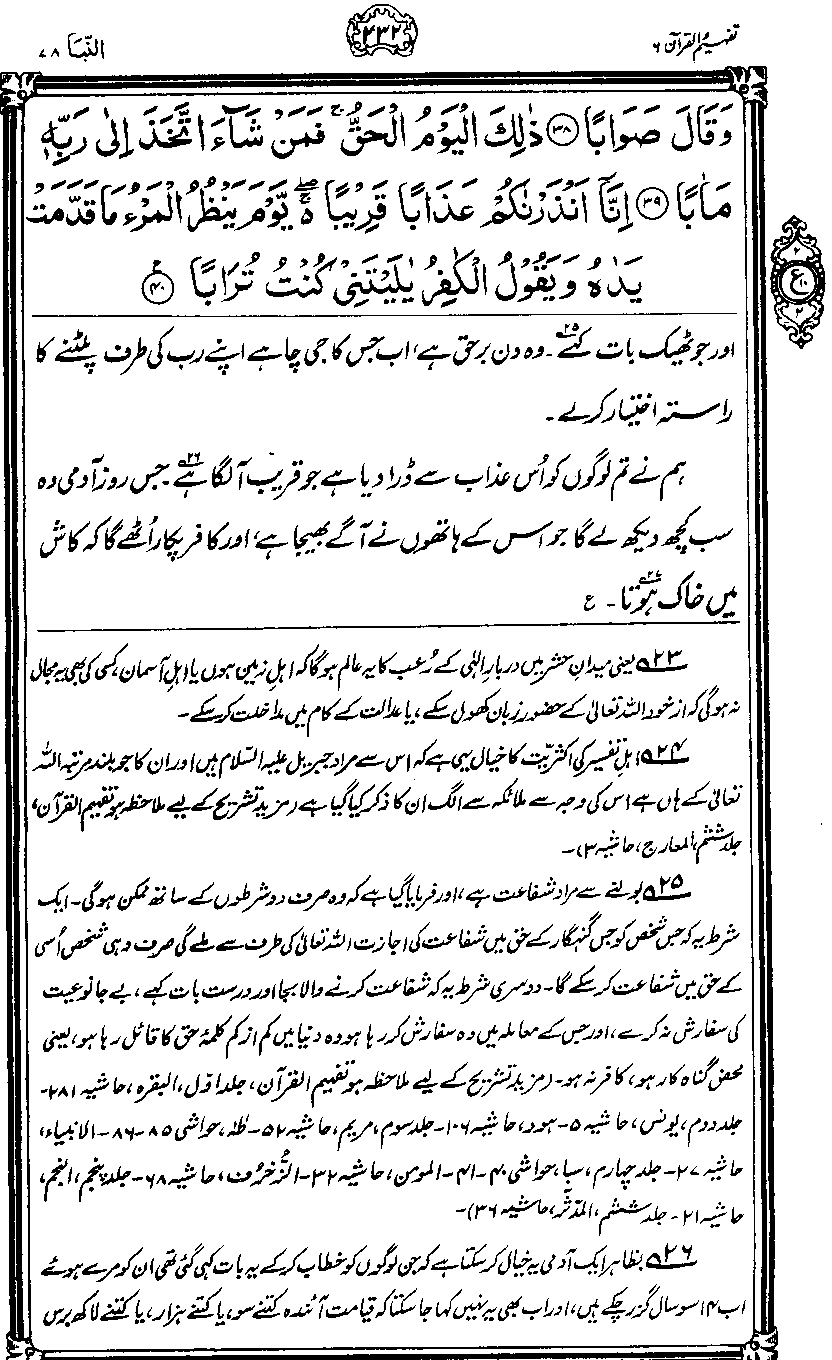 تفہیم القرآن ۶
۲۳۲
النَّبَا ۷۸
وَقَالَ صَوَابًا ﴿۳۸﴾ ذٰلِكَ الْيَوْمُ الْحَقُّ ۚ فَمَنْ شَآءَ اتَّخَذَ اِلٰى رَبِّهٖ
مَاٰبًا ﴿۳۹﴾ اِنَّاۤ اَنْذَرْنٰكُمْ عَذَابًا قَرِيْبًا ۖۚ۬ يَّوْمَ يَنْظُرُ الْمَرْءُ مَا قَدَّمَتْ
يَدٰهُ وَيَقُوْلُ الْكٰفِرُ يٰلَيْتَنِيْ كُنْتُ تُرَابًا ﴿۴۰﴾
۲
ع
۱۰
۲
اور جو ٹھیک بات کہے۲۵۔ وہ دن برحق ہے، اب جس کا جی چاہے اپنے رب کی طرف پلٹنے کا
راستہ اختیار کرلے۔
ہم نے تم لوگوں کو اُس عذاب سے ڈرا دیا ہے جو قریب آ لگا ہے۲۶۔ جس روز آدمی وہ
سب کچھ دیکھ لے گا جو اس کے ہاتھوں نے آگے بھیجا ہے، اور کافر پکار اُٹھے گا کہ کاش
میں خاک ہوتا۲۷۔ ع
۲۳؎ یعنی میدانِ حشر میں دربارِ الٰہی کے رُعب کا یہ عالم ہوگا کہ اہلِ زمین ہوں یا اہلِ آسمان، کسی کی بھی یہ مجال
نہ ہوگی کہ از خود اللہ تعالیٰ کے حضور زبان کھول سکے، یا عدالت کے کام میں مداخلت کر سکے۔
۲۴؎ اہلِ تفسیر کی اکثریت کا خیال یہی ہے کہ اس سے مراد جبریل علیہ السّلام ہیں اور ان کا جو بلند مرتبہ اللہ
تعالیٰ کے ہاں ہے اس کی وجہ سے ملائکہ سے الگ ان کا ذکر کیا گیا ہے (مزید تشریح کے لیے ملاحظہ ہو تفہیم القرآن،
جلد ششم، المعارج، حاشیہ ۳)۔
۲۵؎ بولنے سے مراد شفاعت ہے، اور فرمایا گیا ہے کہ وہ صرف دو شرطوں کے ساتھ ممکن ہوگی۔ ایک
شرط یہ کہ جس شخص کو جس گنہگار کے حق میں شفاعت کی اجازت اللہ تعالیٰ کی طرف سے ملے گی صرف وہی شخص اُسی
کے حق میں شفاعت کر سکے گا۔ دوسری شرط یہ کہ شفاعت کرنے والا بجا اور درست بات کہے، بے جا نوعیت
کی سفارش نہ کرے، اور جس کے معاملہ میں وہ سفارش کر رہا ہو وہ دنیا میں کم از کم کلمۂ حق کا قائل رہا ہو، یعنی
محض گناہ کار ہو، کافر نہ ہو۔ (مزید تشریح کے لیے ملاحظہ ہو تفہیم القرآن، جلد اوّل، البقرہ، حاشیہ ۲۸۱۔
جلد دوم، یونس، حاشیہ ۵۔ ہود، حاشیہ ۱۰۶۔ جلد سوم، مریم، حاشیہ ۵۲۔ طٰہٰ، حواشی ۸۵۔۸۶۔ الانبیاء،
حاشیہ ۲۷۔ جلد چہارم، سبا، حواشی ۴۰۔۴۱۔ المومن، حاشیہ ۳۲۔ الزُّخرُف، حاشیہ ۶۸۔ جلد پنجم، النجم،
حاشیہ ۲۱۔ جلد ششم، المدّثّر، حاشیہ ۳۶)۔
۲۶؎ بظاہر ایک آدمی یہ خیال کر سکتا ہے کہ جن لوگوں کو خطاب کر کے یہ بات کہی گئی تھی ان کو مرے ہوئے
اب ۱۴ سو سال گزر چکے ہیں، اور اب بھی یہ نہیں کہا جا سکتا کہ قیامت آئندہ کتنے سو، یا کتنے ہزار، یا کتنے لاکھ برس